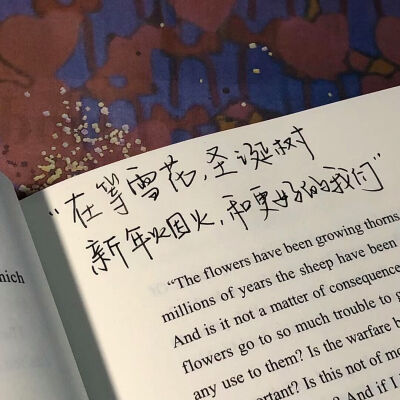 “在等雪落,圣诞树
新年烟火,和更好的我们”
nich
“The flowers have been growing thorns
millions of years the sheep have been
And is it not a matter of consequence
flowers go to so much trouble to g
any use to them? Is the warfare b
portant? Is this not of mo
? And if I